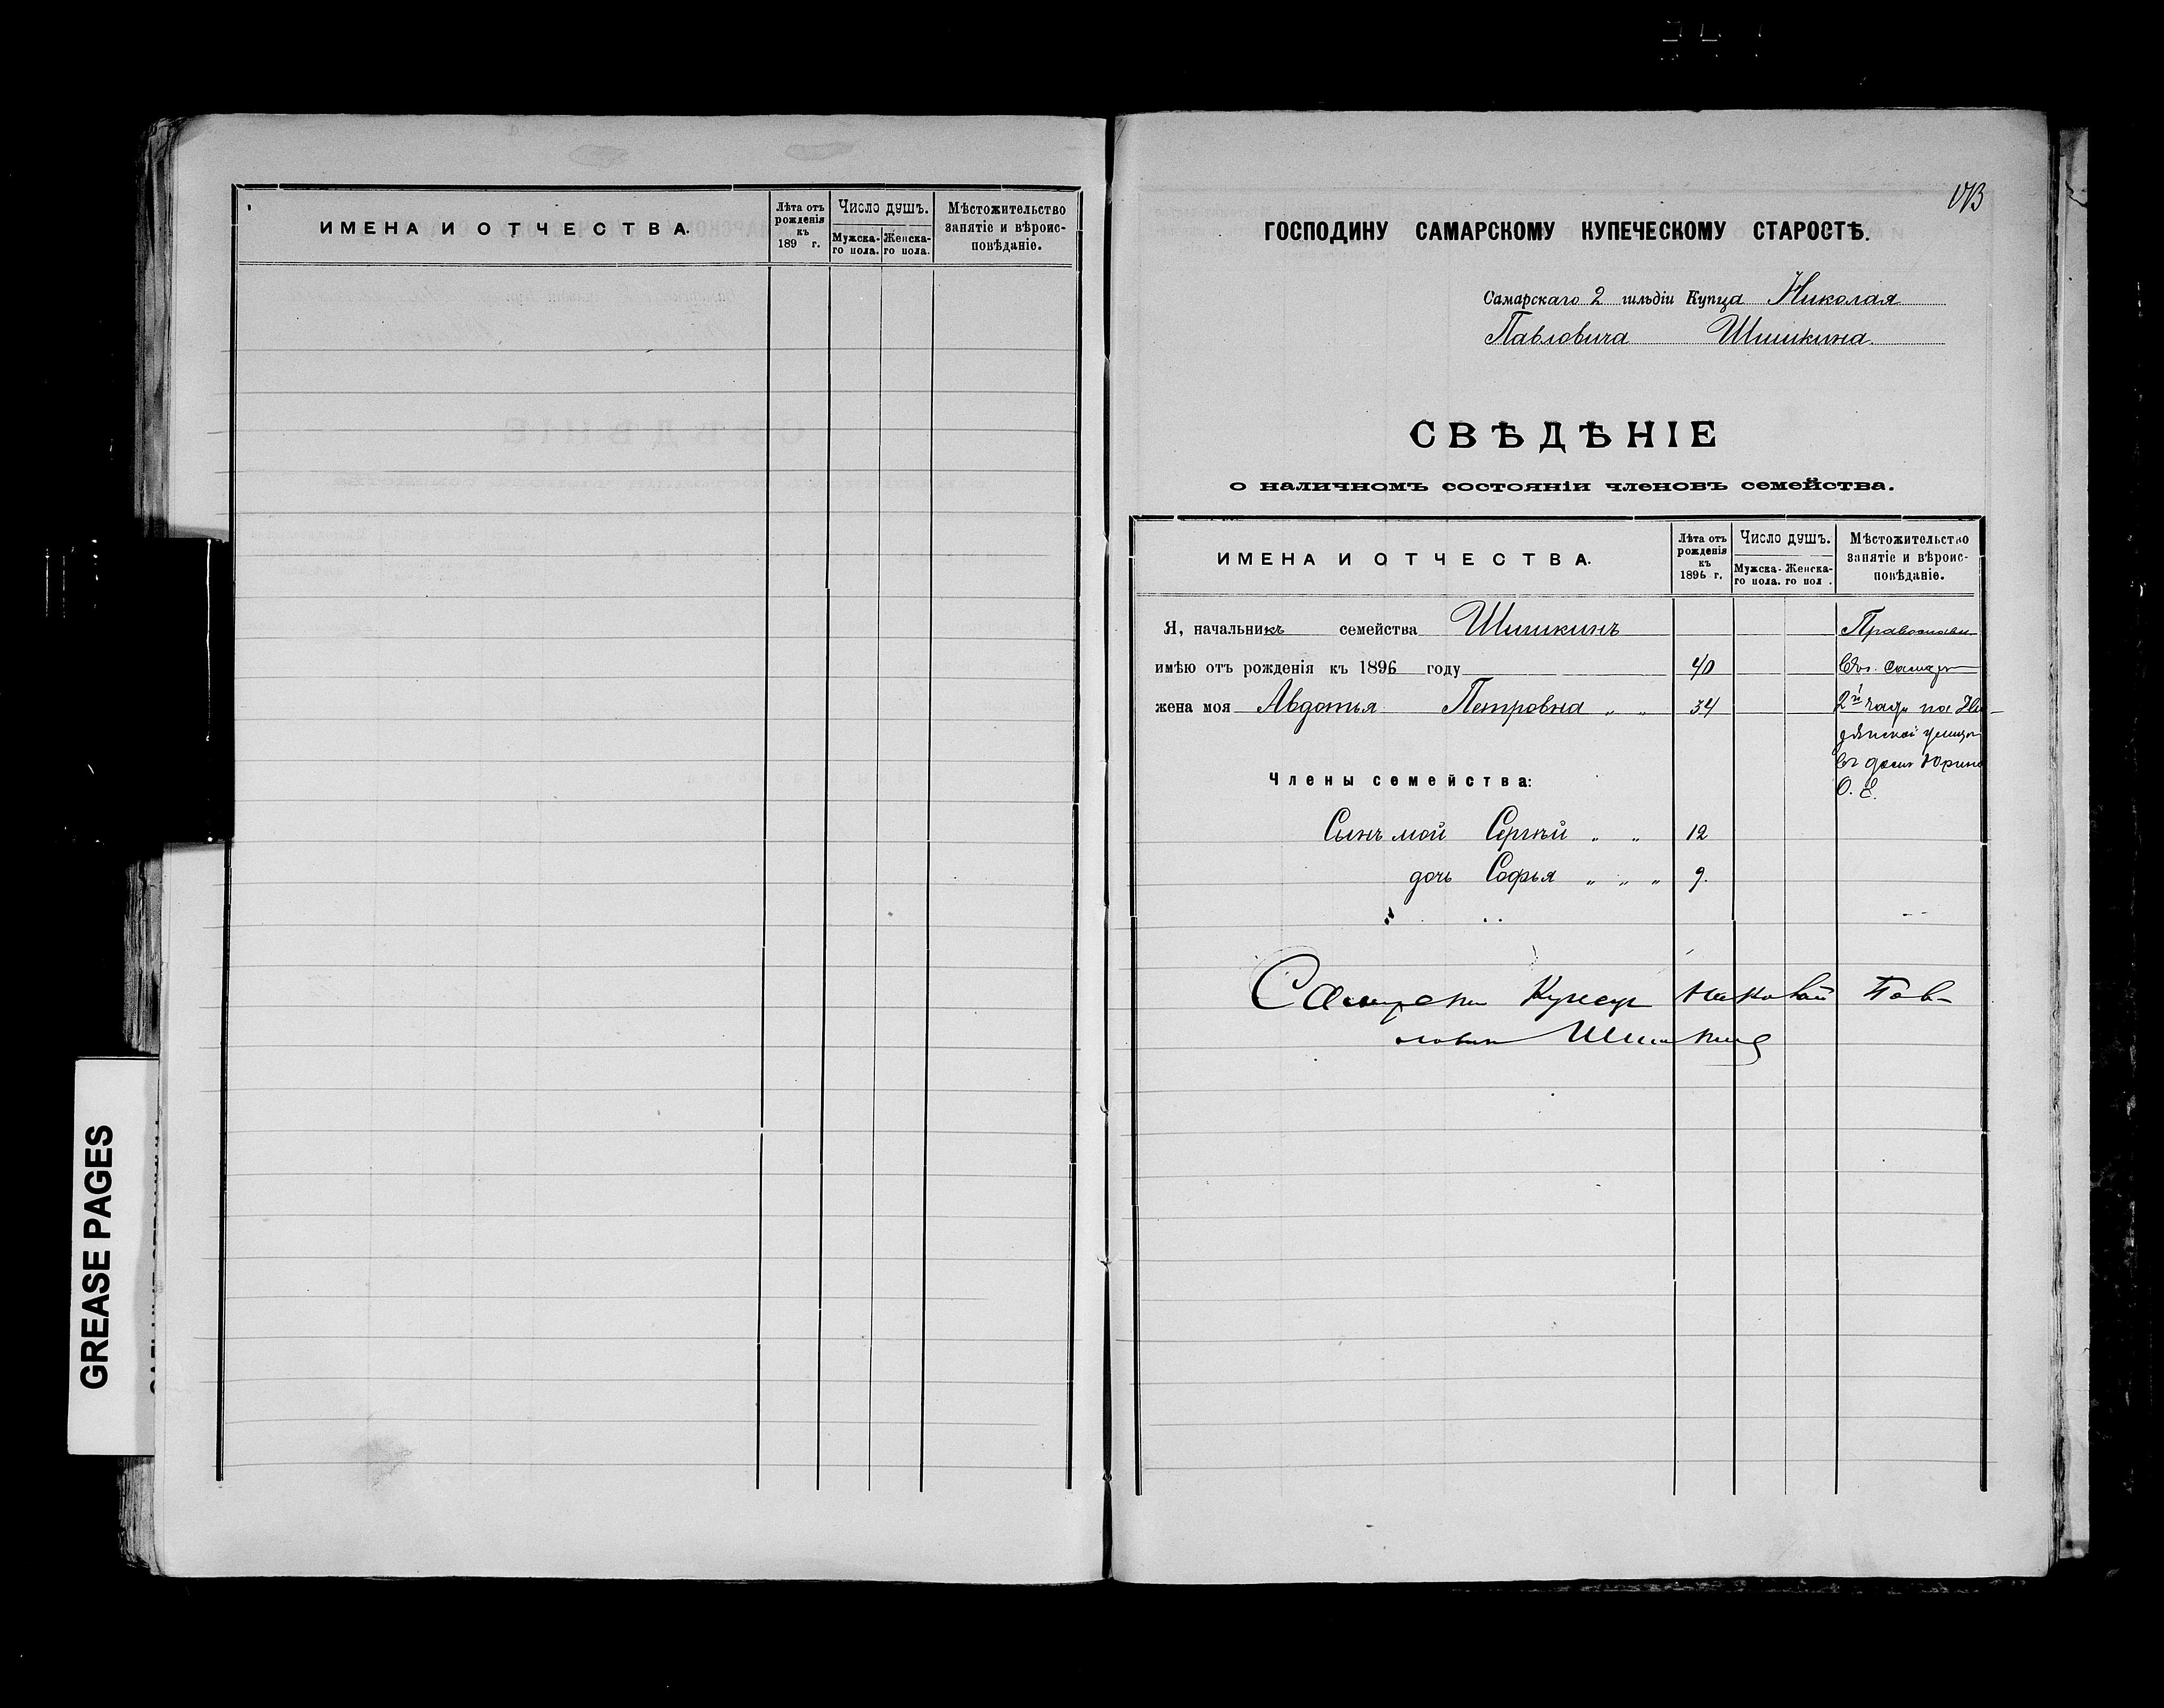 ИМЕНА И ОТЧЕСТВА.
Лѣта отъ рожденія къ 189 г.
Число душъ.
Мужска-го пола.
Женска-го пола.
Мѣстожительство занятіе и вѣроис-повѣданіе.
GREASE PAGES
ГОСПОДИНУ САМАРСКОМУ КУПЕЧЕСКОМУ СТАРОСТѢ.
Самарскаго 2 гильдіи Купца Николая
Павловича Шишкина.
СВѢДѢНІЕ
о наличномъ состояніи членовъ семейства.
ИМЕНА И ОТЧЕСТВА.
Лѣта отъ рожденія къ 1896 г.
Число душъ.
Мужска-го пола.
Женска-го пол .
Мѣстожительство занятіе и вѣроис-повѣданіе.
Я, начальникъ семейства Шишкинъ Православн
имѣю отъ рожденія къ 1896 году 40
жена моя Авдотья Петровна " " 34
2й части на
улицѣ
въ домѣ
О. Е.
Члены семейства:
Сынъ мой Сергѣй " " 12
дочь Софья " " " 9.
Самарски Купец Николай Пав-
лович Шишкин